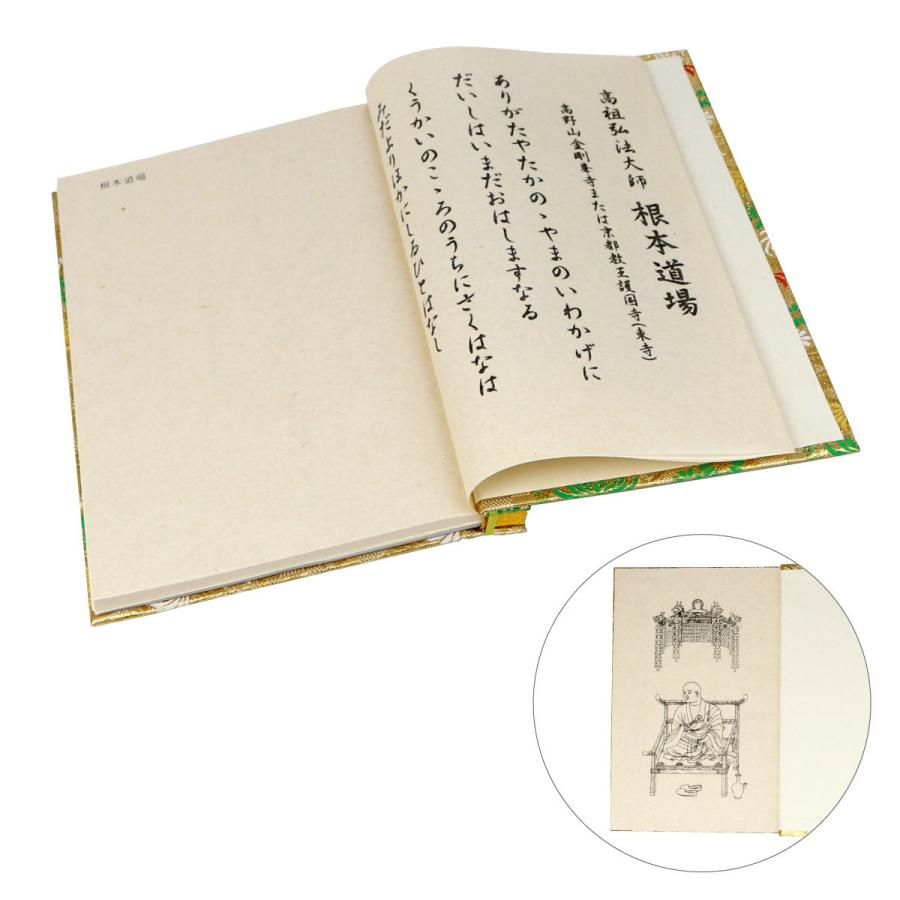 高祖弘法大師 根本道場
高野山金剛峯寺または京都教王護国寺（東寺）
ありがたやたかのゝやまのいわかげに
だいしはいまだおはしますなる
くうかいのこゝろのうちにさくはなは
みだよりほかにしるひとはなし
根本道場